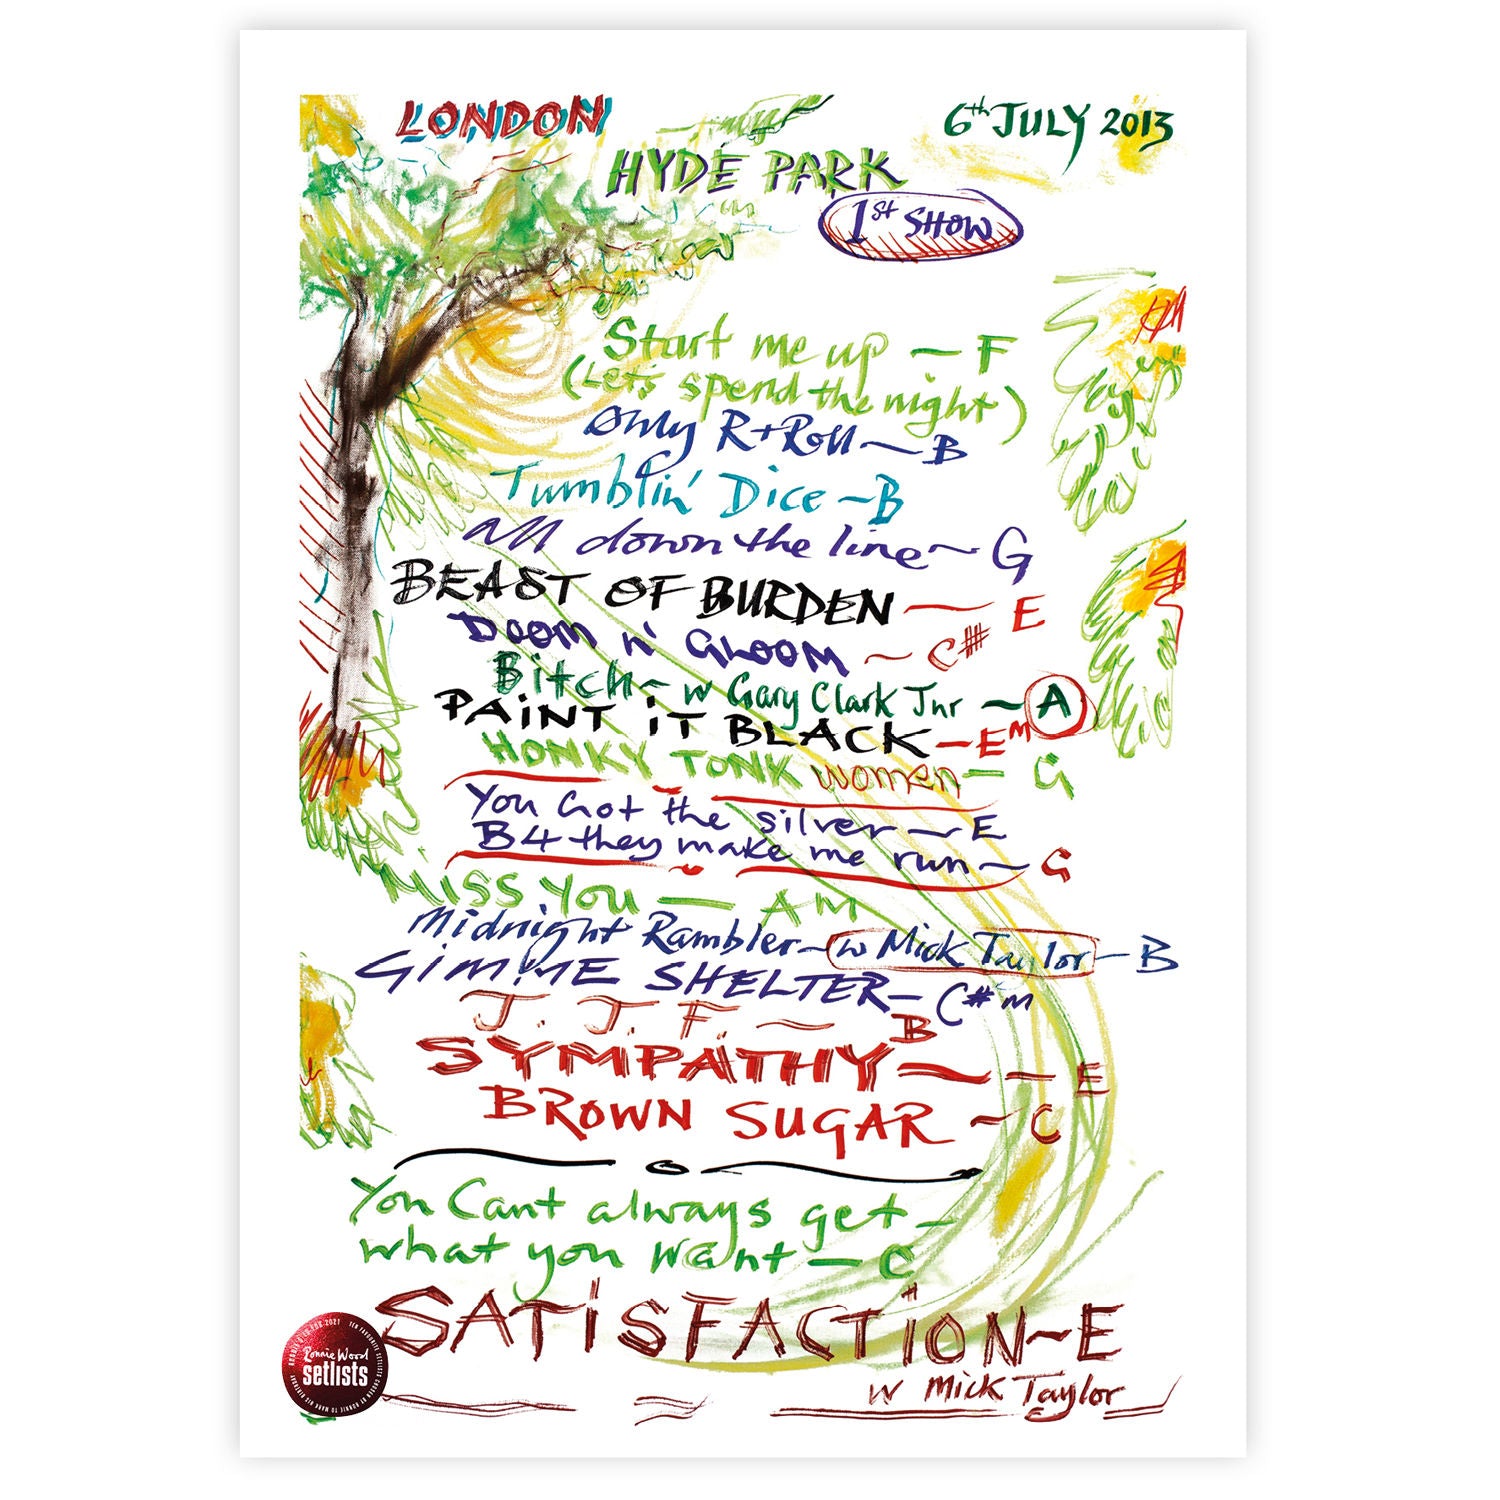 LONDON
6th JULY 2013
HYDE PARK
1st SHOW
Start me up ~ F
(Let's spend the night)
Only R+Roll ~ B
Tumblin' Dice ~ B
All down the line ~ G
BEAST OF BURDEN ~ E
DOOM N' GLOOM ~ C#
Bitch ~ w Gary Clark Jnr ~ A
PAINT IT BLACK - Em
HONKY TONK women - G
You Got the silver ~ E
B4 they make me run ~ G
MISS YOU — AM
Midnight Rambler ~ w Mick Taylor - B
GIMME SHELTER - C#m
J. J. F. ~ B
SYMPATHY ~ - E
BROWN SUGAR ~ C
You Cant always get -
what you want - C
SATISFACTION ~ E
w Mick Taylor
Ronnie Wood
setlists